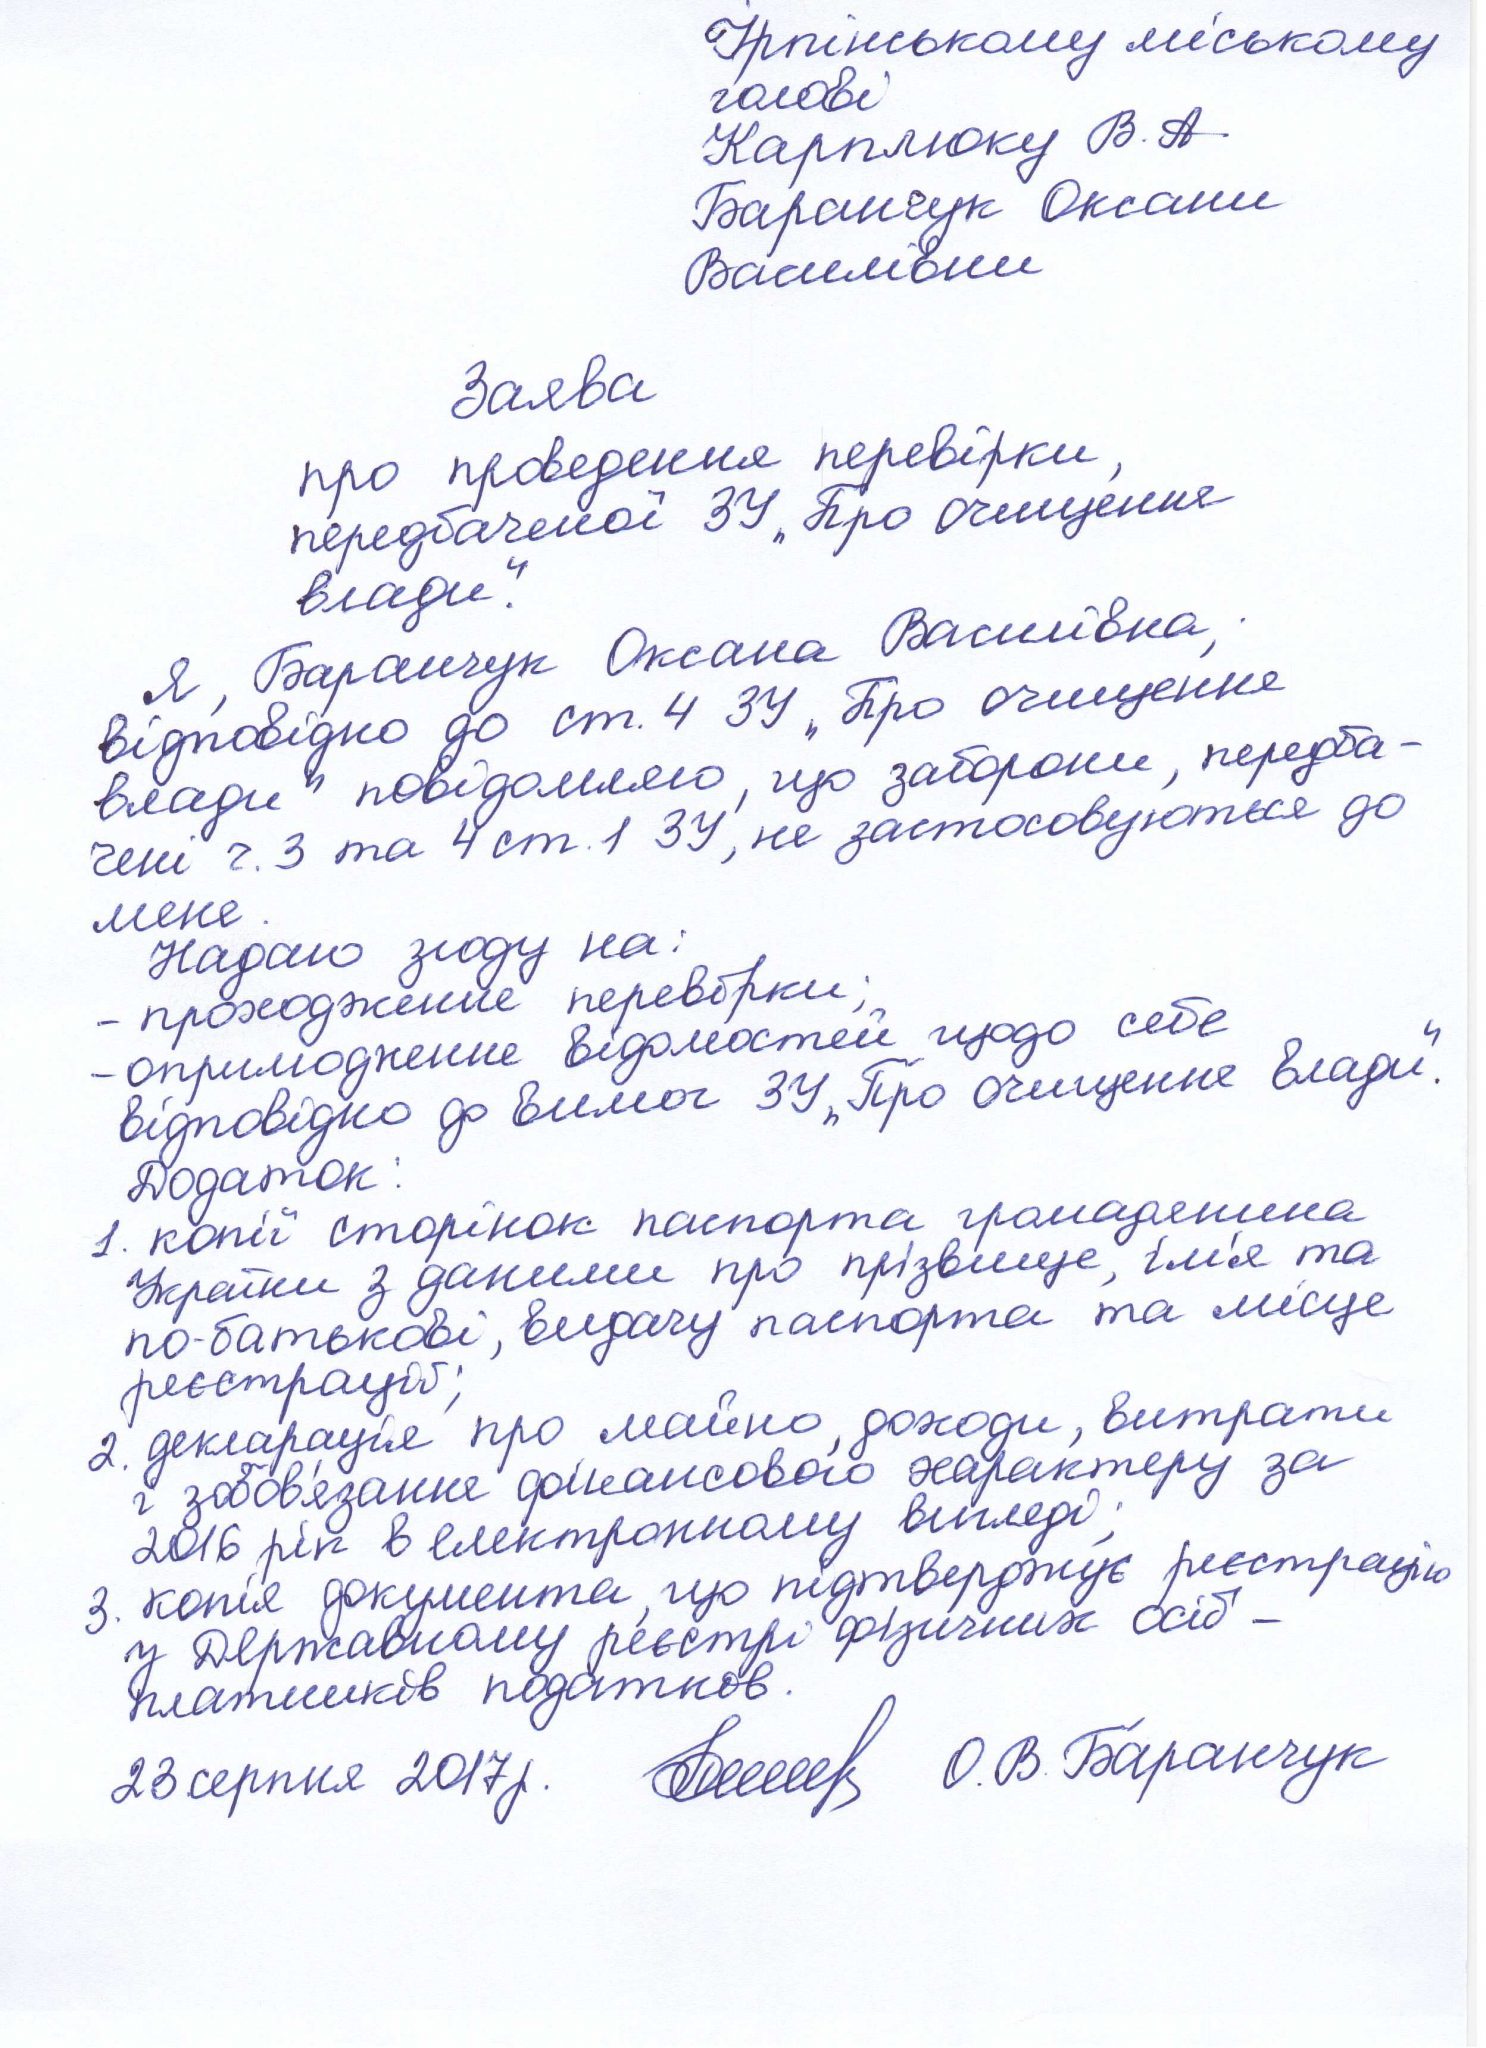 Ірпінському міському
голові
Карплюку В. А
Баранчук Оксани
Василівни
Заява
про проведення перевірки,
передбаченої ЗУ „Про очищення
влади".
Я, Баранчук Оксана Василівна,
відповідно до ст. 4 ЗУ „Про очищення
влади" повідомляю, що заборони, передба-
чені ч. 3 та 4 ст. 1 ЗУ, не застосовуються до
мене.
Надаю згоду на:
- проходження перевірки;
- оприлюдження відомостей щодо себе
відповідно до вимог ЗУ „Про очищення влади".
Додаток:
1. копії сторінок паспорта громадянина
України з даними про прізвище, ім'я та
по-батькові, видачу паспорта та місце
реєстрації;
2. декларація про майно, доходи, витрати
і зобов'язання фінансового характеру за
2016 рік в електронному вигляді;
3. копія документа, що підтверджує реєстрацію
у Державному реєстрі фізичних осіб -
платників податків.
23 серпня 2017р. О. В. Баранчук